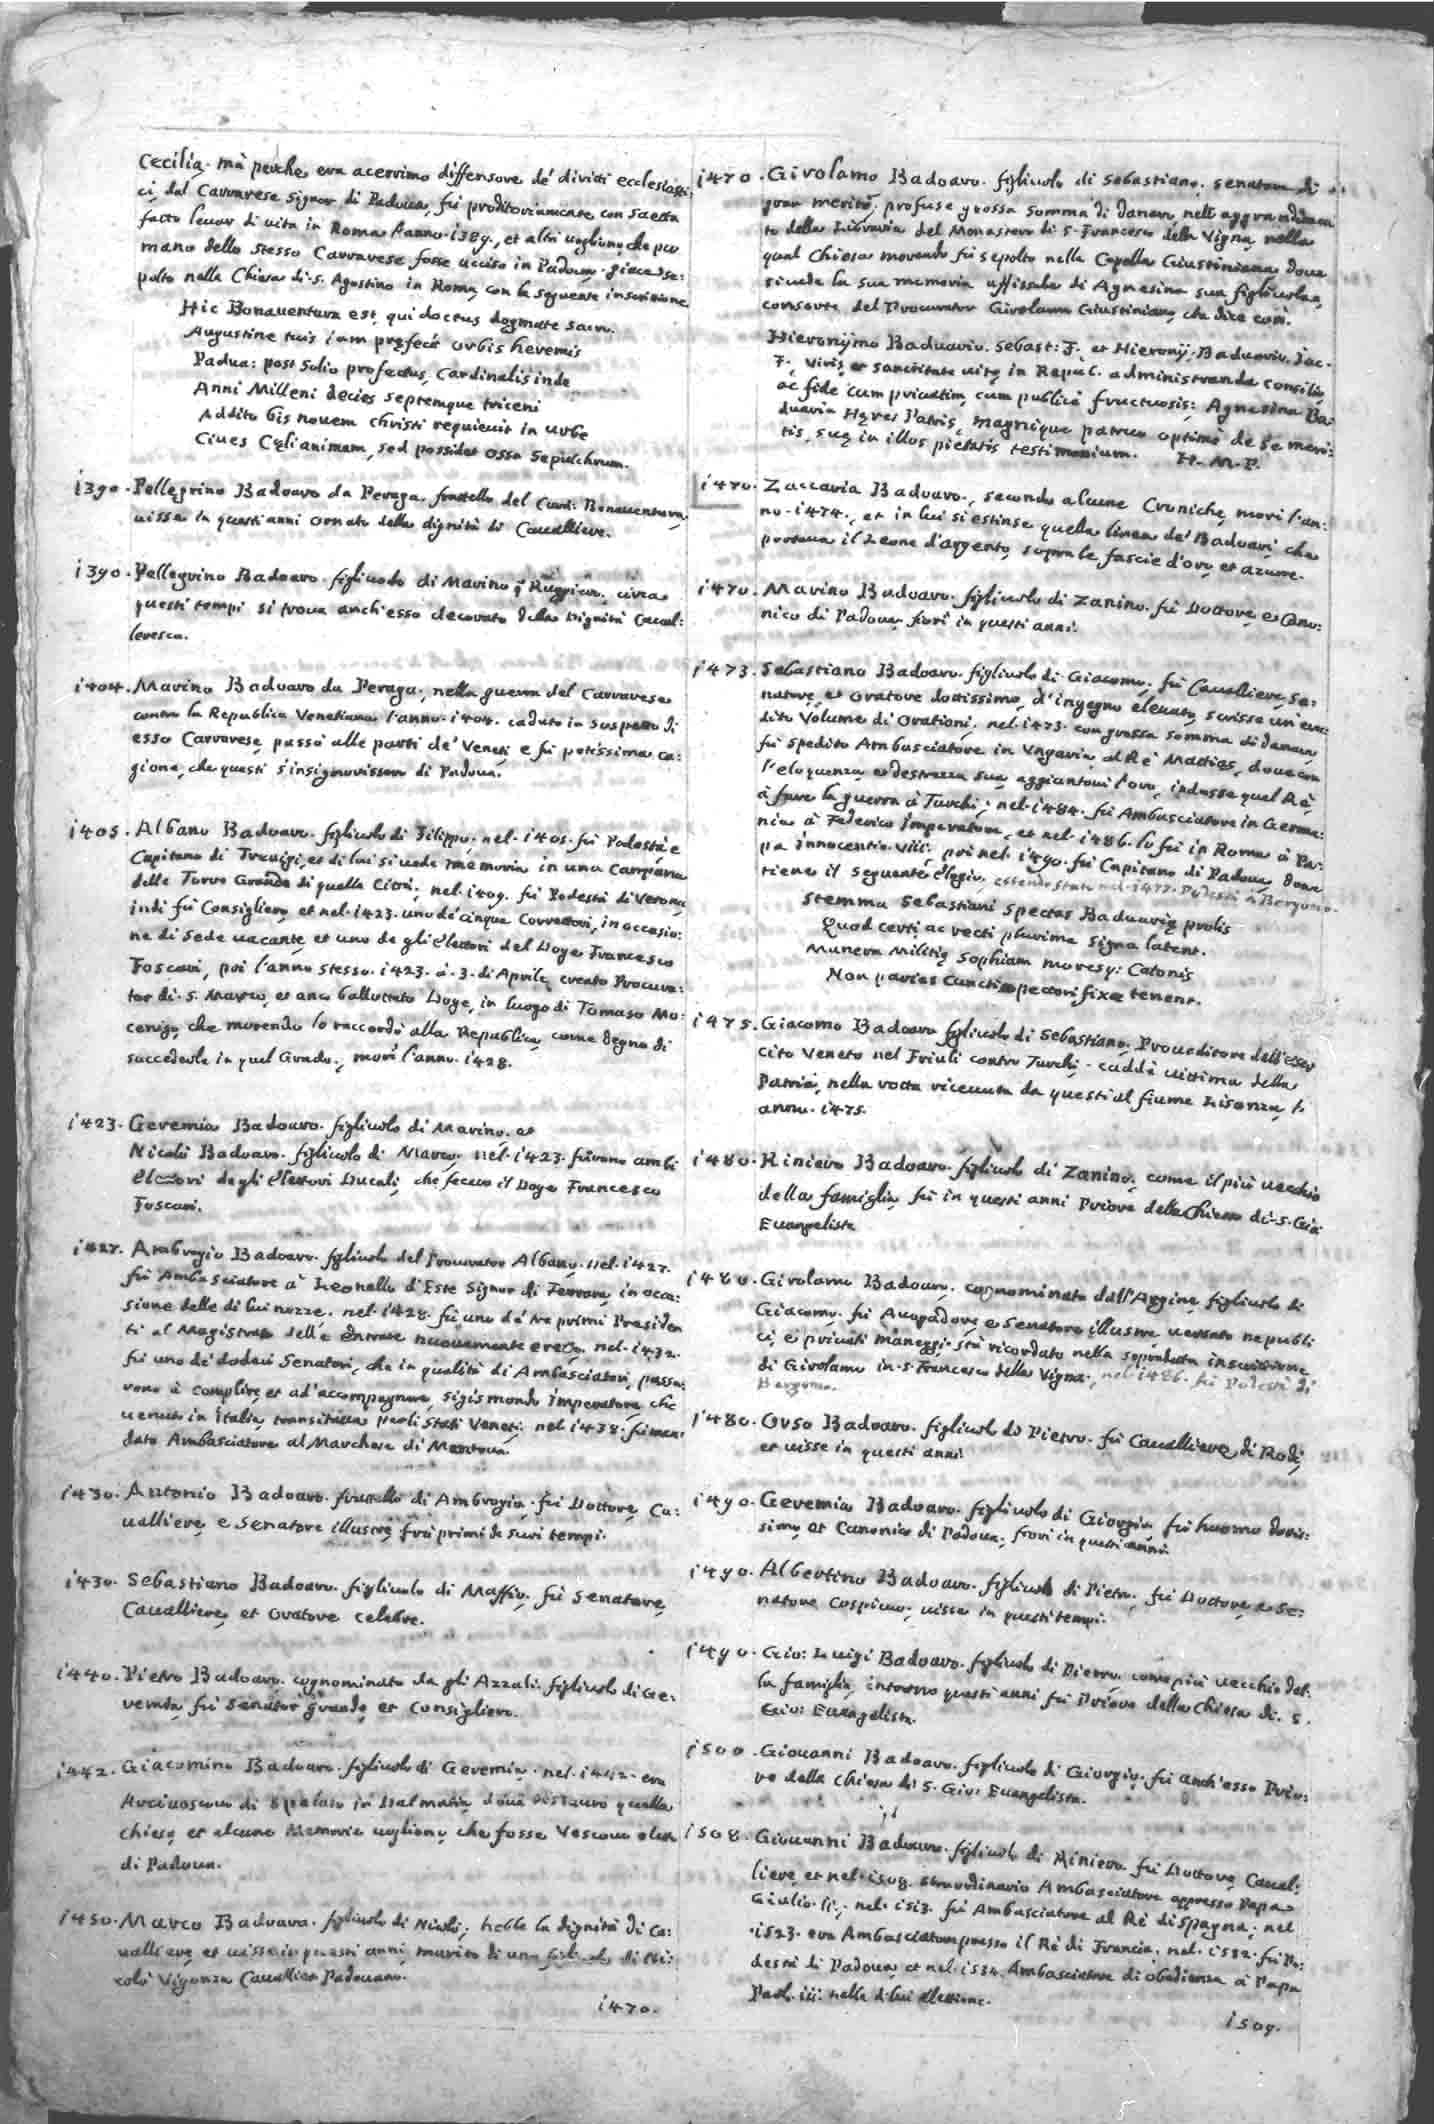 Cecilia. mà perche, era acerrimo diffensore de' diritti ecclesiasti:
ci, dal Carrarese Signor di Padoua, fù proditoriamente con saetta
fatto leuar di uita in Roma l'anno. i389., et altri uogliono, che per
mano dello stesso Carrarese fosse ucciso in Padoua. giace se:
polto nella Chiesa di. S. Agostino in Roma, con la seguente inscrizione
Hic Bonauentura est, qui doctus dogmate sacro.
Augustine tuis iam prefecit orbis heremis
Padua: post solio profectus, Cardinalis inde
Anni Milleni decies septemque triceni
Addito bis nouem christi requieuit in urbe
Ciues Cęli animam, sed possidet ossa Sepulchrum.
i390. Pellegrino Badoaro da Peraga. fratello del Card: Bonauentura,
uisse in questi anni ornato della dignità di Cauallier.
i390. Pellegrino Badoaro. figliuolo di Marino q. Ruggier. circa
questi tempi si troua anch'esso decorato della Dignità Caual:
leresca.
i404. Marino Badoaro da Peraga, nella guerra del Carrarese
contro la Republica Venetiana l'anno. i404. caduto in sospetto di
esso Carrarese, passò alle parti de' Veneti, e fù potissima ca:
gione, che questi s'insignorissero di Padoua.
i405. Albano Badoaro. figliuolo di Filippo. nel. i405. fù Podestà e
Capitano di Treuigi, et di lui si uede memoria in una Campana
delle Torre Grande di quella Città; nel. i409. fù Podestà di Verona,
indi fù Consigliere, et nel. i423. uno de' cinque Correttori, in occasio:
ne di Sede uacante, et uno de gli elettori del Doge Francesco
Foscari, poi l'anno stesso. i423. à. 3. di Aprile, creato Procura:
tor di. S. Marco, et anco ballottato Doge, in luogo di Tomaso Mo:
cenigo, che morendo lo raccordò alla Republica, come degno di
succederle in quel Grado., morì l'anno. i428.
i423. Geremia Badoaro. figliuolo di Marino. et
Nicolò Badoaro. figliuolo di Marco. nel. i423. furono ambi
Elettori degli Elettori Ducali, che fecero il Doge Francesco
Foscari.
i427. Ambrogio Badoaro. figliuolo del Procurator Albano. nel. i427.
fù Ambasciatore à Leonello d'Este Signor di Ferrara, in occa:
sione delle di lui nozze. nel. i428. fù uno de' tre primi Presiden
ti al Magistrato delle Entrate nuouamente eretto. nel. i432.
fù uno de' dodeci Senatori, che in qualità di Ambasciatori, passa:
rono à complire, et ad' accompagnare, Sigismondo Imperatore, che
uenuto in Italia, transitaua per li stati Veneti. nel. i438. fù man
dato Ambasciatore al Marchese di Mantoua.
i430. Antonio Badoaro. fratello di Ambrogio. fù Dottore, Ca:
ualliere, e Senatore illustre frà primi de suoi tempi.
i430. Sebastiano Badoaro. figliuolo di Maffio. fù Senatore,
Caualliere, et Oratore celebre.
i440. Pietro Badoaro. cognominato da gli Azzali. figliuolo di Ge:
remia, fù Senator grande, et Consigliere.
i442. Giacomino Badoaro. figliuolo di Geremia. nel. i442. era
Arciuescouo di Spalato in Dalmatia, doue restaurò quella
chiesa, et alcune Memorie uogliono, che fosse Vescouo eletto
di Padoua.
i450. Marco Badoaro. figliuolo di Nicolò, hebbe la dignità di Ca:
ualliere, et uisse in questi anni, marito di una figliuola di Ni:
colò Vigonza Cauallier Padouano.
i470.
i470. Girolamo Badoaro. figliuolo di Sebastiano. senatore di
gran merito, profuse grossa somma di danaro nell' aggrandimen
to della Libraria del Monastero di S. Francesco della Vigna, nella
qual Chiesa morendo fù sepolto nella Capella Giustiniana, doue
risiede la sua memoria affissale di Agnesina sua figliuola,
consorte del Procurator Girolamo Giustiniano, che dice così.
Hieronÿmo Baduario. Sebast: F. et Hieronÿ. Baduario. Jac.
F. Viris et sanctitate uitę in Repub. administranda consilio,
ac fide cum priuatim, cum publicè fructuosis; Agnesina Ba:
duaria Hęres Patris, magnique patruo optimè de se meri:
tis, suę in illos pietatis testimonium. H. M. P.
i470. Zaccaria Badoaro., secondo alcune Croniche, morì l'an:
no. i474., et in lui si estinse quella linea de' Badoari che
portaua il Leone d'argento, sopra le fascie d'oro, et azure.
i470. Marino Badoaro. figliuolo di Zanino. fù Dottore, e Cano:
nico di Padoua, fiorì in questi anni.
i473. Sebastiano Badoaro. figliuolo di Giacomo, fù Caualliere, Se:
natore, et Oratore dottissimo, d'ingegno eleuato, scrisse un' eru:
dito Volume di Orationi, nel. i473. con grossa somma di danaro,
fù spedito Ambasciatore in Vngaria, al Rè Mattias, doue con
l'eloquenza, e destrezza sua, aggiuntoui l'oro, indusse quel Rè,
à fare la guerra à Turchi; nel. i484. fù Ambasciatore in Germa:
nia à Federico Imperatore, et nel. i486. lo fù in Roma à Pa:
pa Innocentio. viii., poi nel. i490. fù Capitano di Padoua, doue
tiene il seguente elogio, essendo stato nel. i477. Podestà à Bergomo.
Stemma Sebastiani Spectas Baduarię prolis
Quod certi, ac recti plurima signa latent.
Munera Militię Sophiam moresq; Catonis
Non paries cunctis pectori fixa tenent.
i475. Giacomo Badoaro figliuolo di Sebastiano; Proueditore dell' eser
cito Veneto nel Friuli contro Turchi. caddè uittima della
Patria, nella rotta riceuuta da questi al fiume Lisonzo, l'
anno. i475.
i480. Riniero Badoaro. figliuolo di Zanino, come il più uecchio
della famiglia, fù in questi anni Priore della Chiesa di. S. Gio:
Euangelista
i480. Girolamo Badoaro. cognominato dall'Argine figliuolo di
Giacomo. fù Auogadore, e Senatore illustre uersato ne publi
ci, e priuati maneggi. stà ricordato nella sopradetta inscrittione
di Girolamo in. S. Francesco della Vigna., nel. i486. fù Podestà di
Bergomo.
i480. Orso Badoaro. figliuolo di Pietro. fù Caualliere di Rodi,
et uisse in questi anni.
i490. Geremia Badoaro. figliuolo di Giorgio, fù huomo dotis:
simo, et Canonico di Padoua, fiorì in questi anni.
i490. Albertino Badoaro. figliuolo di Pietro, fù Dottore, e Se:
natore cospicuo, uisse in questi tempi.
i490. Gio: Luigi Badoaro. figliuolo di Pietro. come più uecchio del:
la famiglia, intorno questi anni fù Priore della Chiesa di. S.
Gio: Euangelista.
i500. Giouanni Badoaro. figliuolo di Giorgio, fù anch'esso Prio:
re della Chiesa di S. Gio: Euangelista.
i508. Giouanni Badoaro. figliuolo di Riniero fù Dottore, Caual:
liere, et nel. i508. straordinario Ambasciatore appresso Papa
Giulio. ii.; nel. i5i3. fù Ambasciatore al Rè di Spagna; nel
.i523. era Ambasciatore presso il Rè di Francia, nel. i532. fù Po:
destà di Padoua, et nel. i534. Ambasciatore di obedienza à Papa
Paol. iii. nella di lui elettione.
i509.